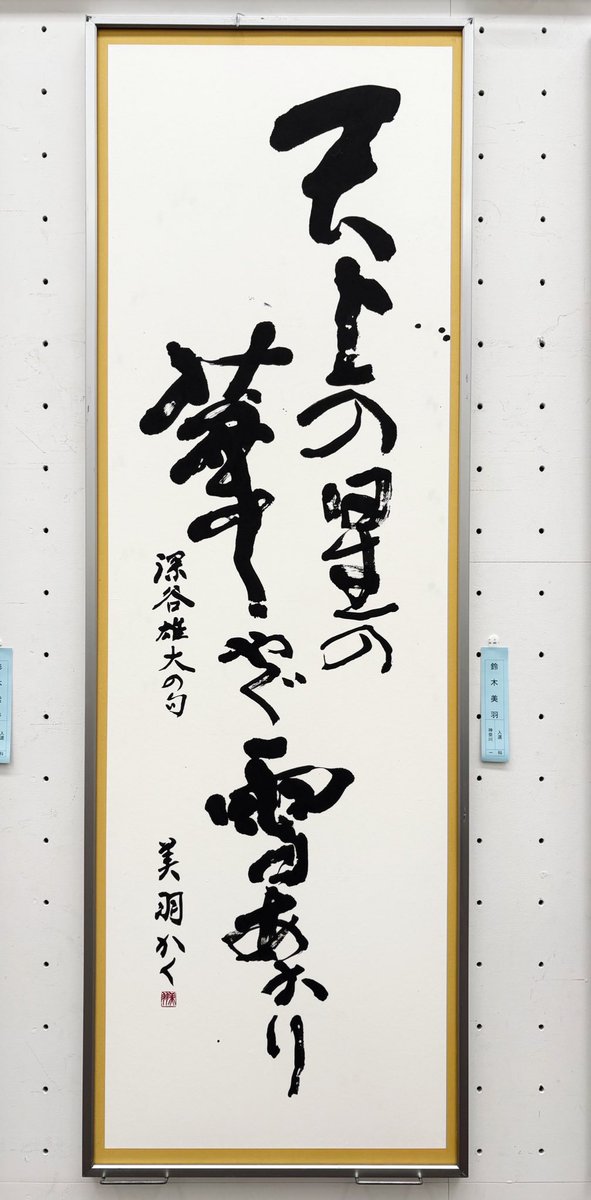 天上の星の
華やぐ雪あかり
深谷雄大の句
美羽かく
鈴木美羽
入選
神奈川 一科